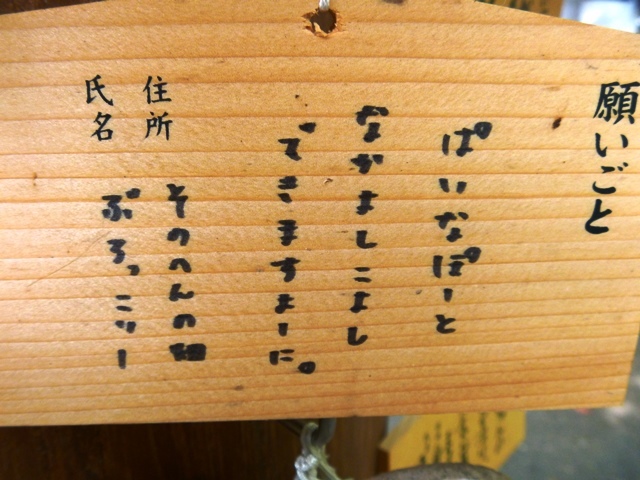 願いごと
ぱいなぽーと
なかよしこよし
できますよーに。
住所 そのへんの畑
氏名 ぶろっこりー